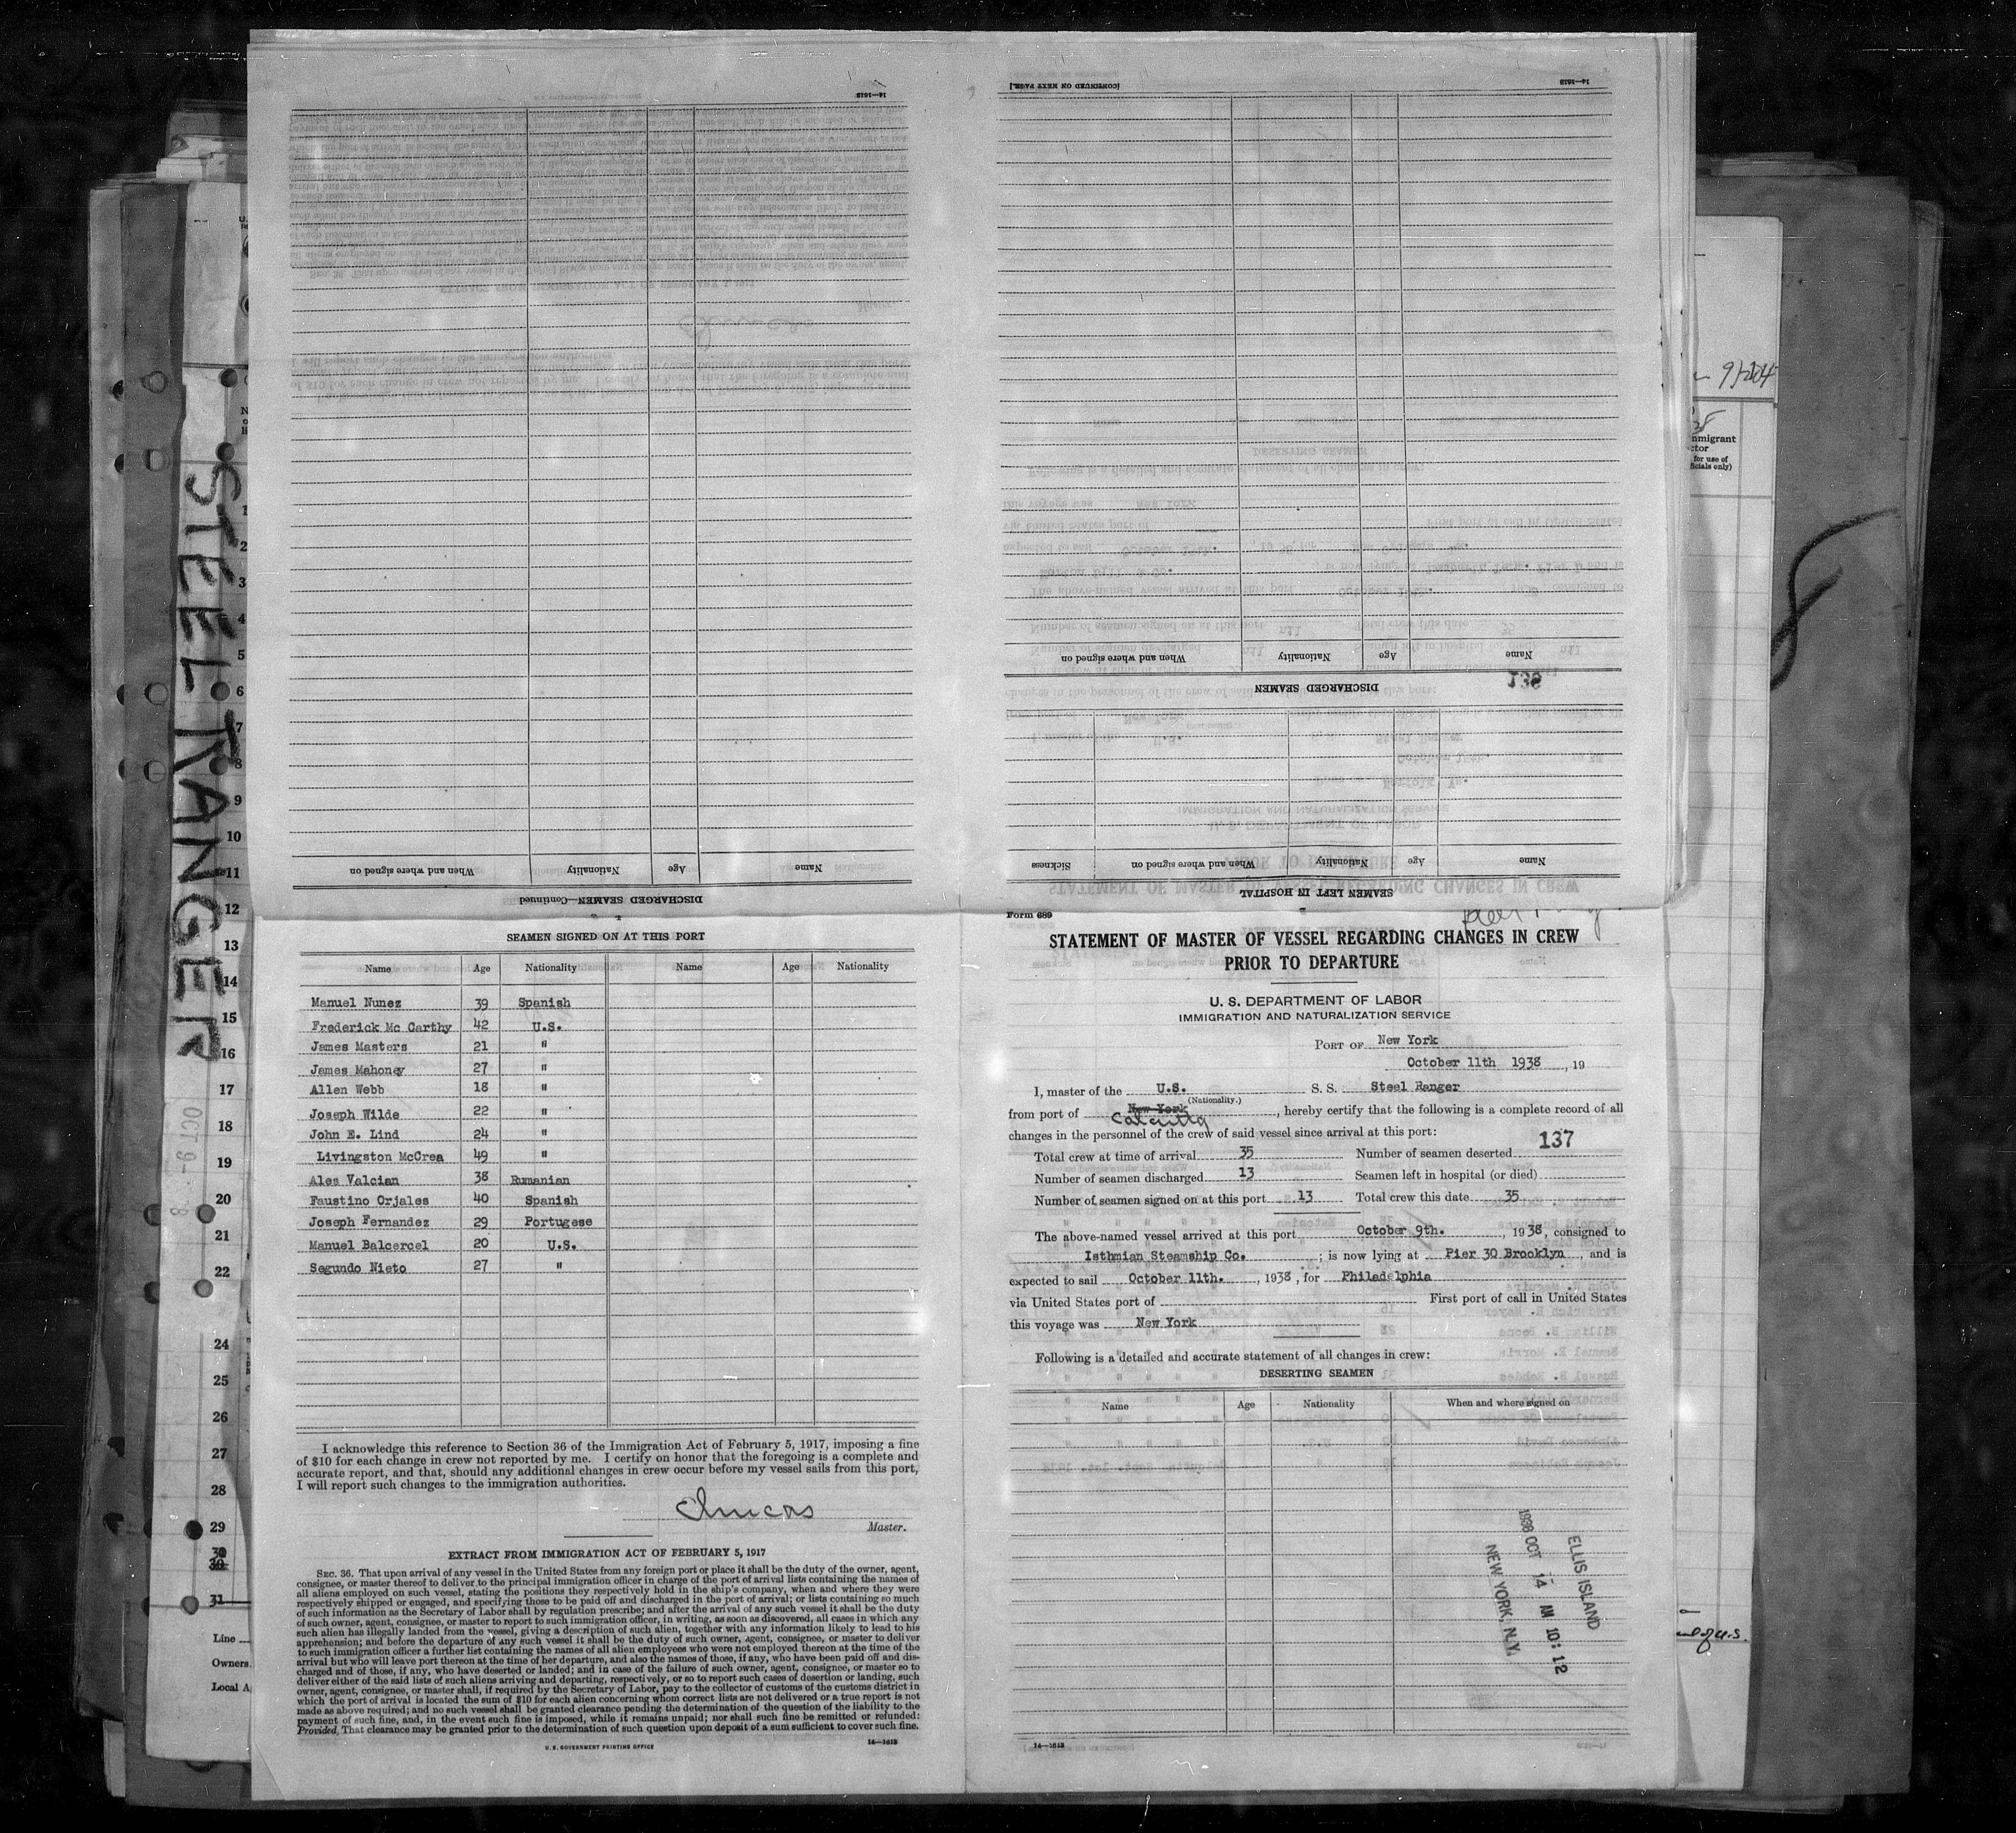 14—1613
[CONTINUED ON NEXT PAGE.]
14—1613
DISCHARGED SEAMEN
Name Age Nationality When and where signed on
136
SEAMEN LEFT IN HOSPITAL
Name Age Nationality When and where signed on Sickness
DISCHARGED SEAMEN—Continued
Name Age Nationality When and where signed on
STEEL RANGER
OCT 9-
SEAMEN SIGNED ON AT THIS PORT
Name Age Nationality Name Age Nationality
Manuel Nunez 39 Spanish
Frederick Mc Carthy 42 U.S.
James Masters 21 "
James Mahoney 27 "
Allen Webb 18 "
Joseph Wilde 22 "
John E. Lind 24 "
Livingston McCrea 49 "
Ales Valcian 38 Rumanian
Faustino Orjales 40 Spanish
Joseph Fernandez 29 Portugese
Manuel Balcercel 20 U.S.
Segundo Nieto 27 "
I acknowledge this reference to Section 36 of the Immigration Act of February 5, 1917, imposing a fine
of $10 for each change in crew not reported by me. I certify on honor that the foregoing is a complete and
accurate report, and that, should any additional changes in crew occur before my vessel sails from this port,
I will report such changes to the immigration authorities.
Master.
EXTRACT FROM IMMIGRATION ACT OF FEBRUARY 5, 1917
SEC. 36. That upon arrival of any vessel in the United States from any foreign port or place it shall be the duty of the owner, agent,
consignee, or master thereof to deliver to the principal immigration officer in charge of the port of arrival lists containing the names of
all aliens employed on such vessel, stating the positions they respectively hold in the ship's company, when and where they were
respectively shipped or engaged, and specifying those to be paid off and discharged in the port of arrival; or lists containing so much
of such information as the Secretary of Labor shall by regulation prescribe; and after the arrival of any such vessel it shall be the duty
of such owner, agent, consignee, or master to report to such immigration officer, in writing, as soon as discovered, all cases in which any
such alien has illegally landed from the vessel, giving a description of such alien, together with any information likely to lead to his
apprehension; and before the departure of any such vessel it shall be the duty of such owner, agent, consignee, or master to deliver
to such immigration officer a further list containing the names of all alien employees who were not employed thereon at the time of the
arrival but who will leave port thereon at the time of her departure, and also the names of those, if any, who have been paid off and dis-
charged and of those, if any, who have deserted or landed; and in case of the failure of such owner, agent, consignee, or master so to
deliver either of the said lists of such aliens arriving and departing, respectively, or so to report such cases of desertion or landing, such
owner, agent, consignee, or master shall, if required by the Secretary of Labor, pay to the collector of customs of the customs district in
which the port of arrival is located the sum of $10 for each alien concerning whom correct lists are not delivered or a true report is not
made as above required; and no such vessel shall be granted clearance pending the determination of the question of the liability to the
payment of such fine, and, in the event such fine is imposed, while it remains unpaid; nor shall such fine be remitted or refunded:
Provided, That clearance may be granted prior to the determination of such question upon deposit of a sum sufficient to cover such fine.
U. S. GOVERNMENT PRINTING OFFICE 14—1613
Form 689
STATEMENT OF MASTER OF VESSEL REGARDING CHANGES IN CREW
PRIOR TO DEPARTURE
U. S. DEPARTMENT OF LABOR
IMMIGRATION AND NATURALIZATION SERVICE
PORT OF New York
October 11th 1938, 19
I, master of the U.S. S. S. Steel Ranger
(Nationality.)
from port of New York, hereby certify that the following is a complete record of all
Calcutta
changes in the personnel of the crew of said vessel since arrival at this port:
137
Total crew at time of arrival 35 Number of seamen deserted
Number of seamen discharged 13 Seamen left in hospital (or died)
Number of seamen signed on at this port 13 Total crew this date 35
The above-named vessel arrived at this port October 9th., 1938, consigned to
Isthmian Steamship Co.; is now lying at Pier 30 Brooklyn, and is
expected to sail October 11th., 1938, for Philadelphia
via United States port of First port of call in United States
this voyage was New York
Following is a detailed and accurate statement of all changes in crew:
DESERTING SEAMEN
Name Age Nationality When and where signed on
ELLIS ISLAND
1938 OCT 14 AM 10:12
NEW YORK, N.Y.
14—1613
1
2
3
4
5
6
7
8
9
10
11
12
13
14
15
16
17
18
19
20
21
22
24
25
26
27
28
29
30
31
Line
Owners
Local A
nmigrant
ctor
for use of
ficials only)
of U.S.